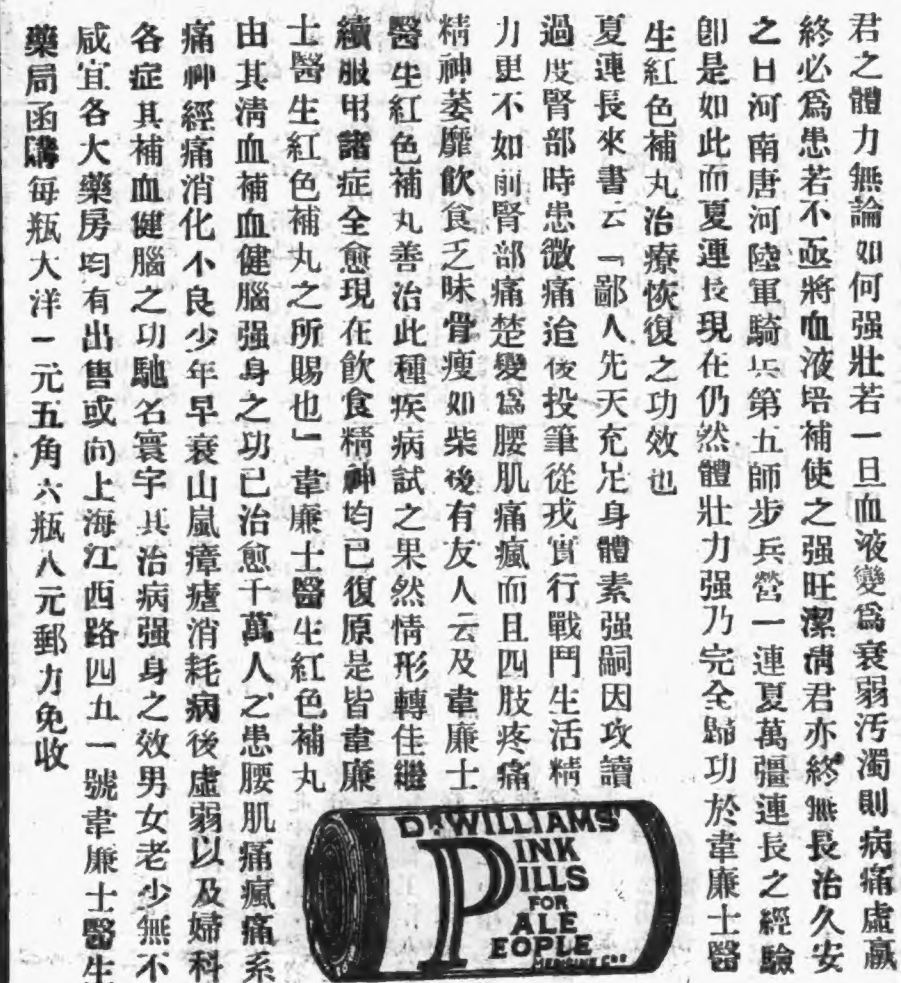 君之體力無論如何强壯若一旦血液變爲衰弱汚濁則病痛虛羸
終必爲患若不亟將血液培補使之强旺潔淸君亦終無長治久安
之日河南唐河陸軍騎兵第五師步兵營一連夏萬彊連長之經驗
卽是如此而夏連長現在仍然體壯力强乃完全歸功於韋廉士醫
生紅色補丸治療恢復之功效也
夏連長來書云「鄙人先天充足身體素强嗣因攻讀
過度腎部時患微痛迨後投筆從戎實行戰鬥生活精
力更不如前腎部痛楚變爲腰肌痛瘋而且四肢疼痛
精神萎靡飲食乏味骨瘦如柴後有友人云及韋廉士
醫生紅色補丸善治此種疾病試之果然情形轉佳繼
續服用諸症全愈現在飲食精神均已復原是皆韋廉
士醫生紅色補丸之所賜也」韋廉士醫生紅色補丸
由其淸血補血健腦强身之功已治愈千萬人之患腰肌痛瘋痛系
痛神經痛消化不良少年早衰山嵐瘴瘧消耗病後虛弱以及婦科
各症其補血健腦之功馳名寰宇其治病强身之效男女老少無不
咸宜各大藥房均有出售或向上海江西路四五一號韋廉士醫生
藥局函購每瓶大洋一元五角六瓶八元郵力免收
DR WILLIAMS'
PINK
PILLS
FOR
PALE
PEOPLE
MEDICINE Co